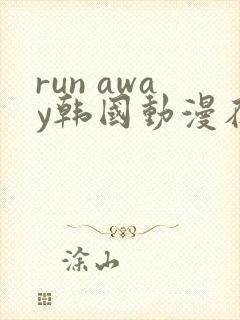 run awa
y韩國動漫在
涂山